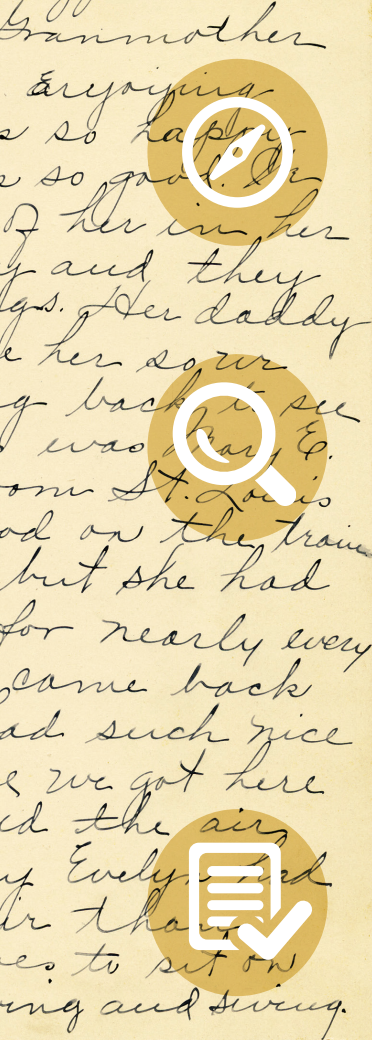 Granmother
Enjoying
s so happy
s so good. In
of her in her
y and they
gs. Her daddy
e her so we
g back to see
was Mary E.
om St. Louis
od on the train
but she had
for nearly every
came back
ad such nice
e we got here
id the air
y Evelyn had
ir than
oes to sit on
ing and swing.